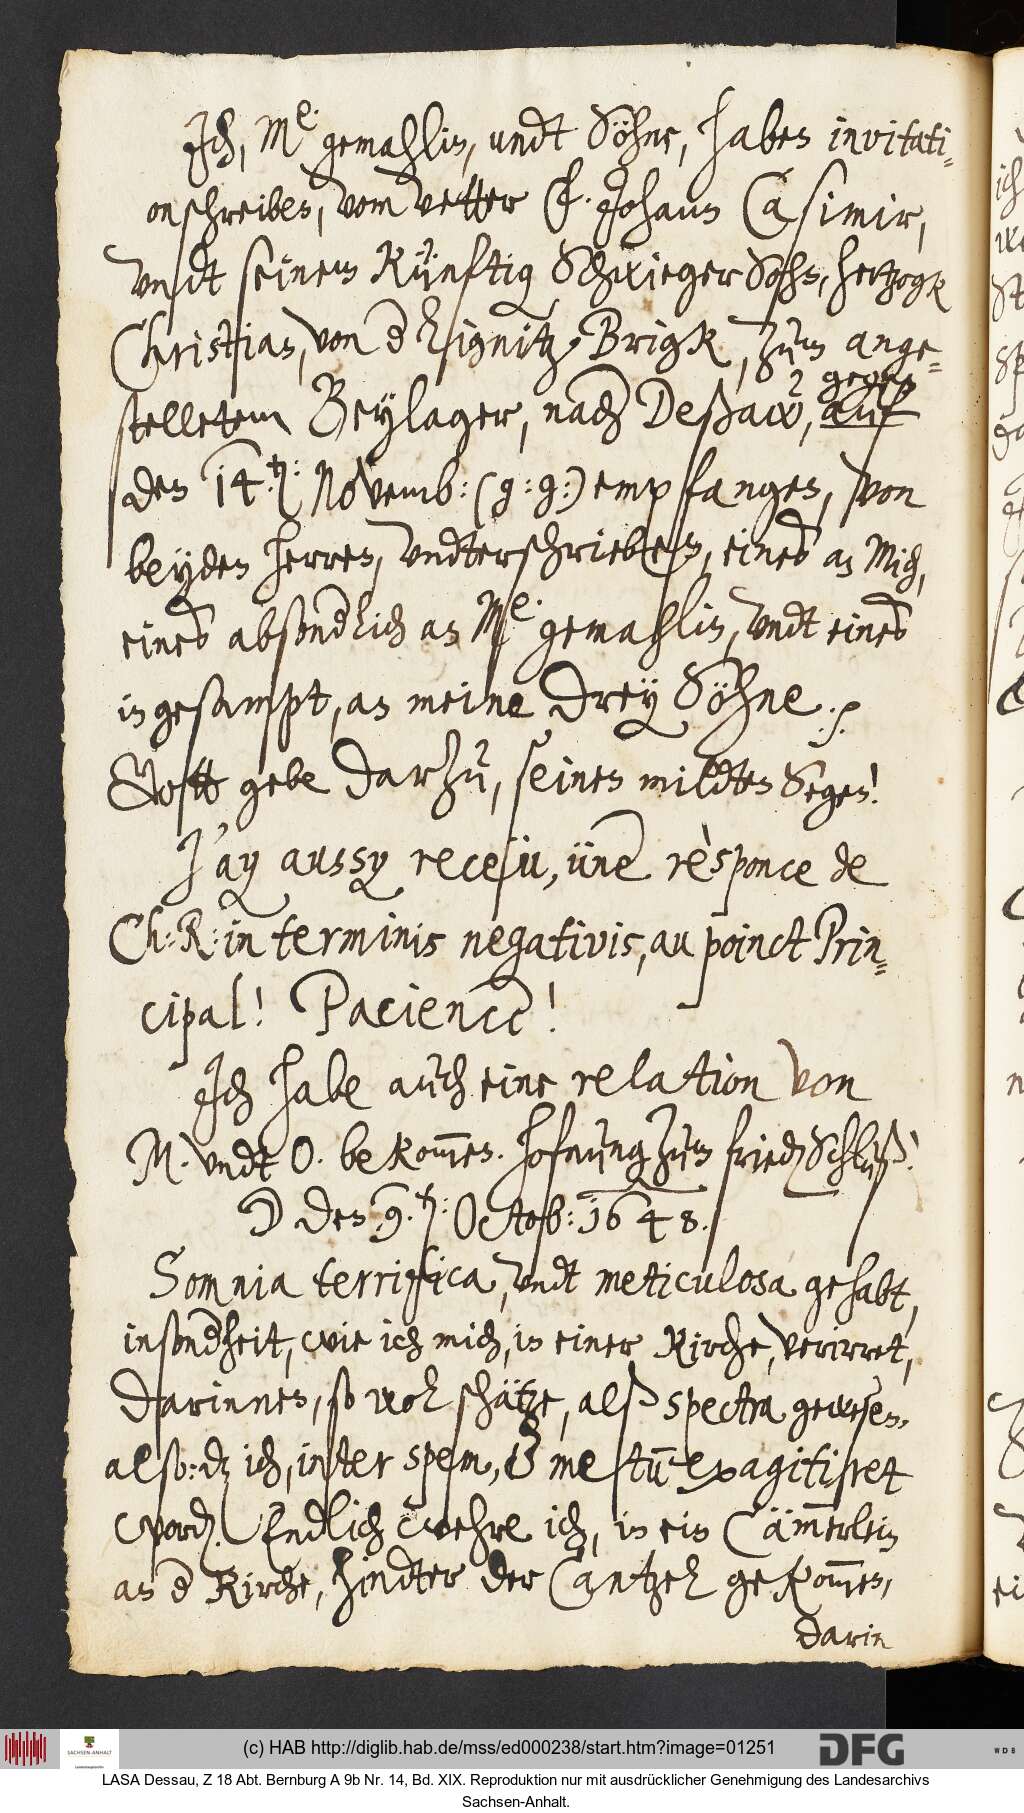 Ich, Me. gemahlin, undt Söhne, haben invitati=
onschreiben, vom vetter F. Johann Casimir,
vndt seinem Künftig Schwieger Sohn, Hertzogk
Christian, von d Lignitz, Brigk, zum ange=
stelletem Beylager, nach Deßaw, auf gegen
den 14.ten: Novemb: (g: g:) empfangen, von
beyden herren, vndterschrieben, eines an Mich,
eines absonderlich an Me. gemahlin, vndt eines
ingesampt, an meine drey Söhne. p
Gott gebe darzu, seinen mildten Segen!
J'ay aussy receu, üne rèsponce de
Ch: R: in terminis negativis, au poinct Prin=
cipal! Pacience!
Ich habe auch eine relation von
M. vndt O. bekommen. Hofnung zum friedenSchluß!
den 9.ten: Octob: 1648.
Somnia terrifica, vndt meticulosa gehabt,
insonderheit, wie ich mich, in einer Kirche, verirret,
darinnen, so wol schätze, alß spectra gewesen,
also: daz ich, inter spem, & metum exagitiret
worden. Endlich wehre ich, in ein Cämmerlein
an d Kirche, hindter der Cantzel gekommen,
darin
(c) HAB http://diglib.hab.de/mss/ed000238/start.htm?image=01251
SACHSEN-ANHALT
DFG
WDB
LASA Dessau, Z 18 Abt. Bernburg A 9b Nr. 14, Bd. XIX. Reproduktion nur mit ausdrücklicher Genehmigung des Landesarchivs
Sachsen-Anhalt.